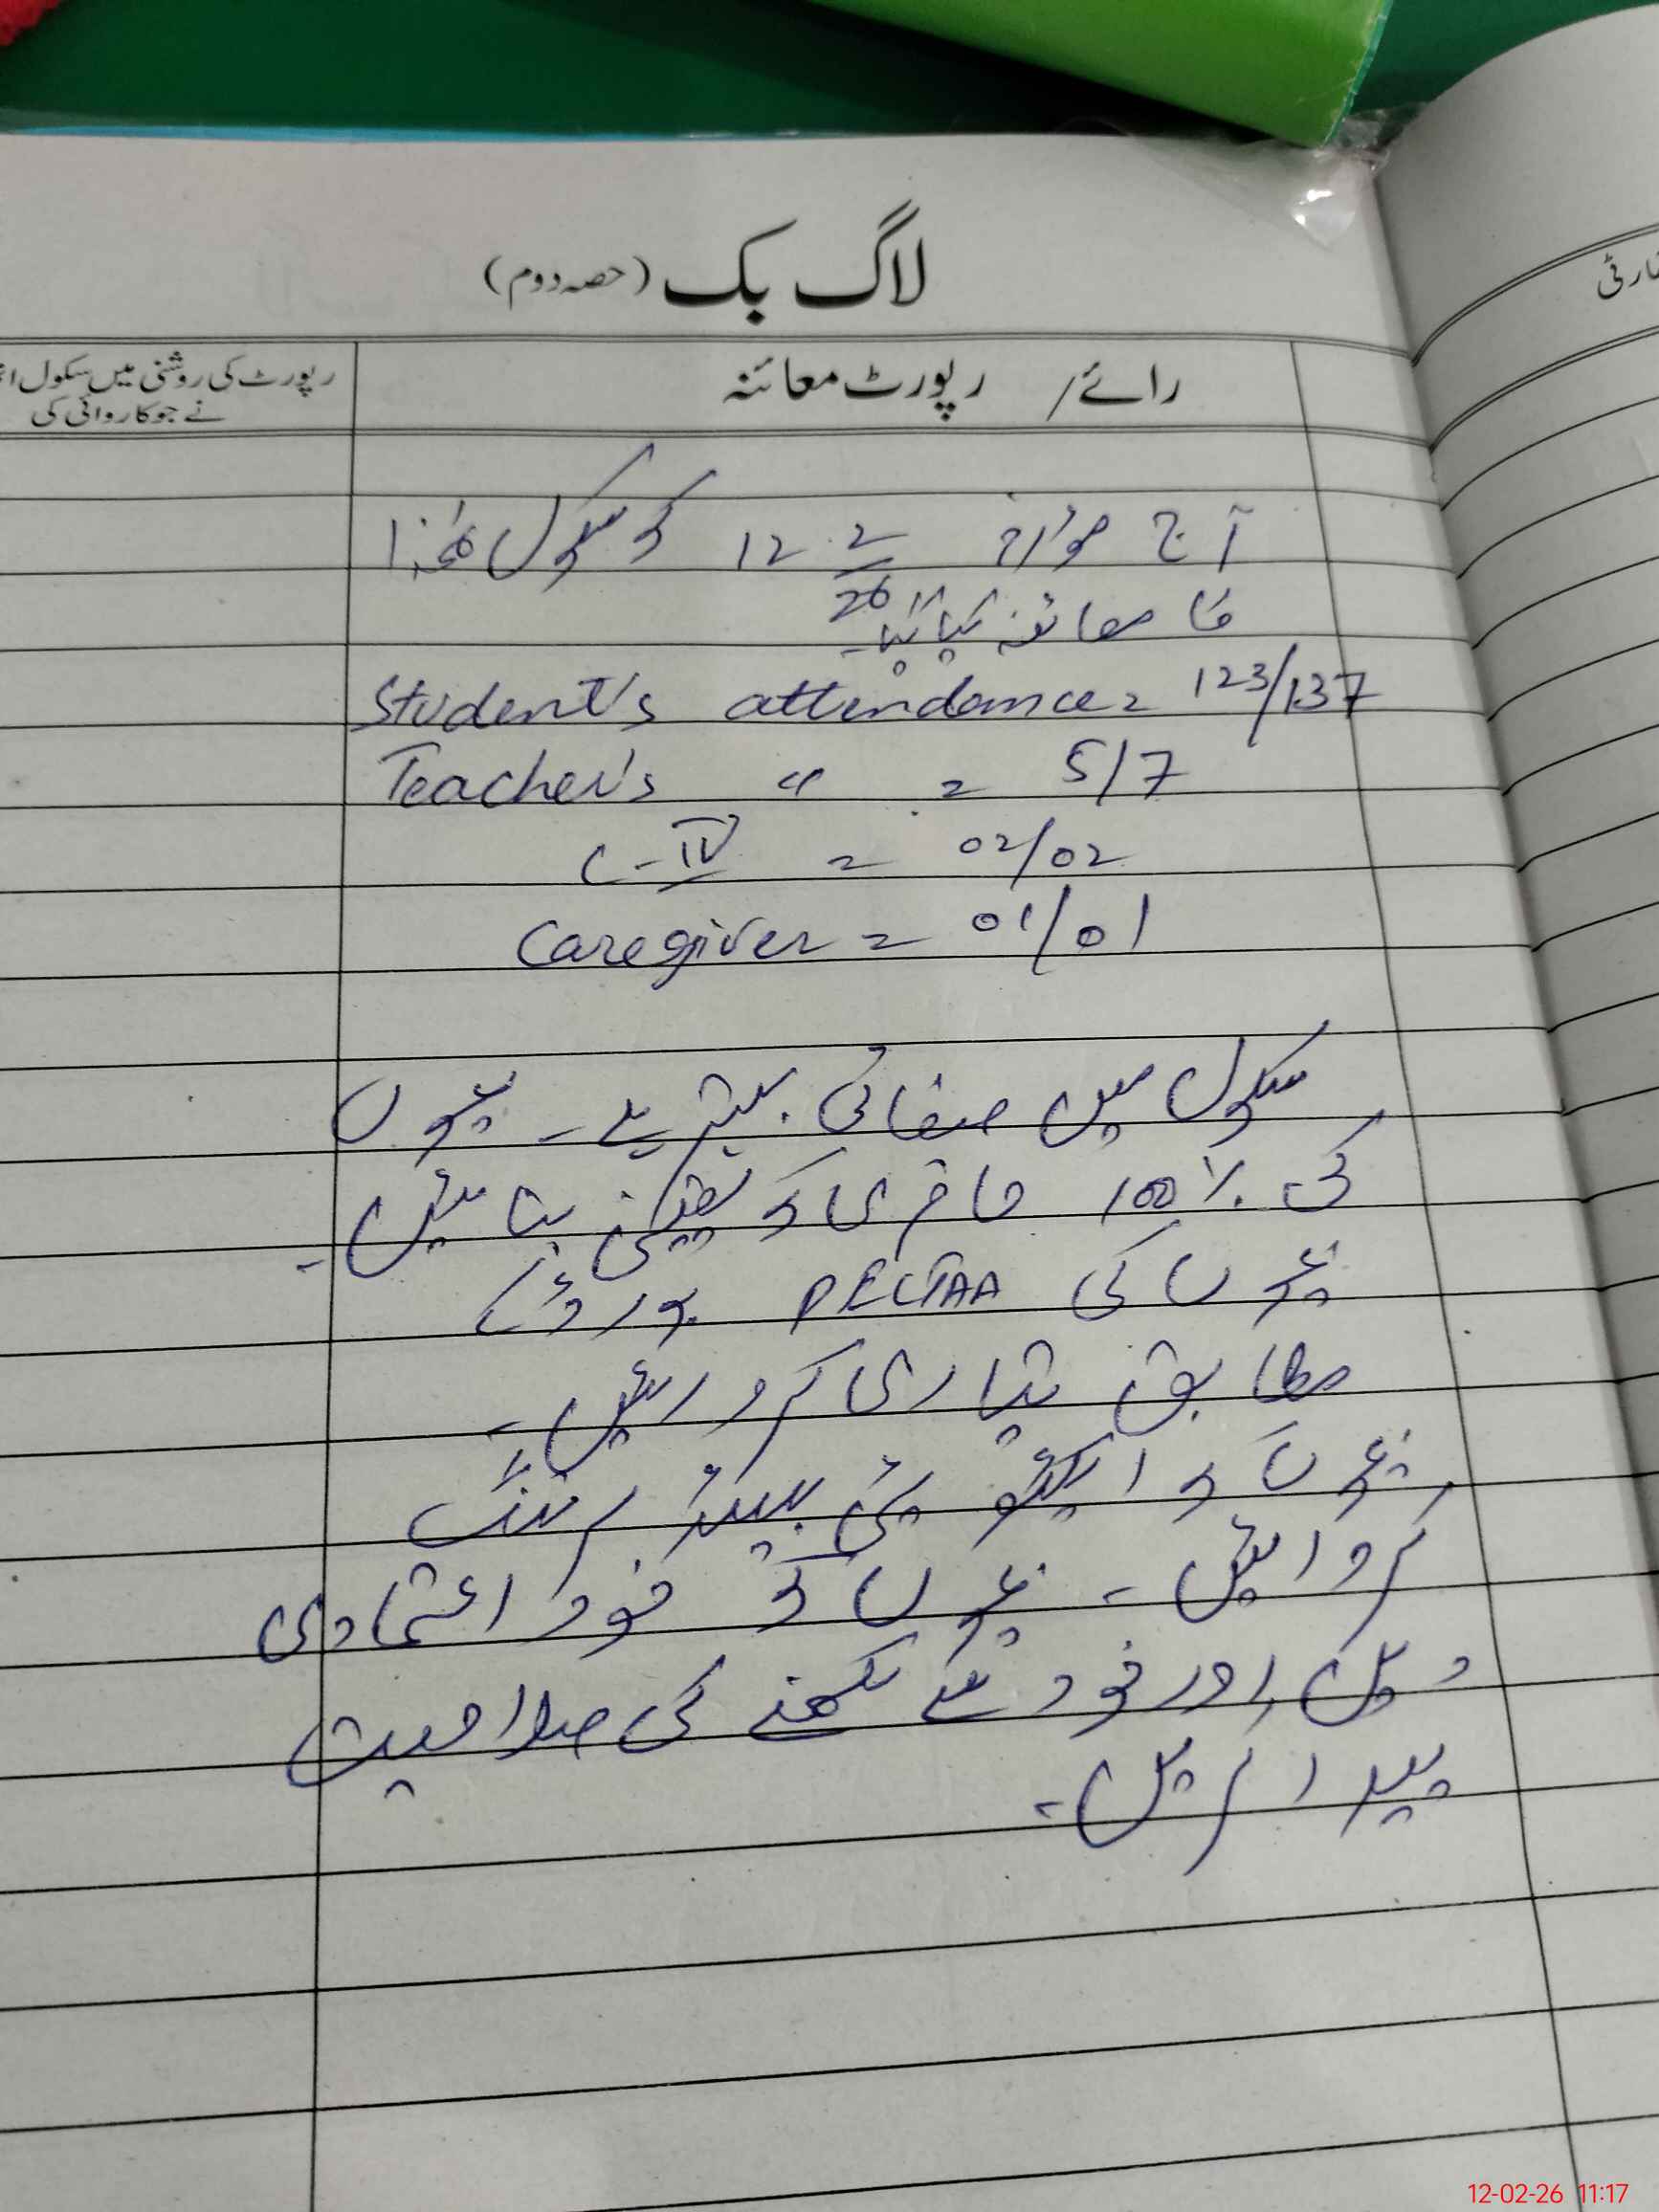 لاگ بک (حصہ دوم)
رائے/ رپورٹ معائنہ
رپورٹ کی روشنی میں سکول
نے جو کاروائی کی
آج مؤرخہ 12.2.26 کو سکول ھٰذا
کا معائنہ کیا گیا۔
Student's attendance = 123/137
Teacher's " = 5/7
C-IV = 02/02
Caregiver = 01/01
سکول میں صفائی بہتر ہے۔ بچوں
کی 100% حاضری کو یقینی بنائیں۔
بچوں کی PECTAA
مطابق تیاری کروائیں۔
بچوں کو ایکٹیوٹی بیسڈ لرننگ
کروائیں۔ بچوں کو خود اعتمادی
دیں اور خود سے لکھنے کی صلاحیت
پیدا کریں۔
12-02-26 11:17